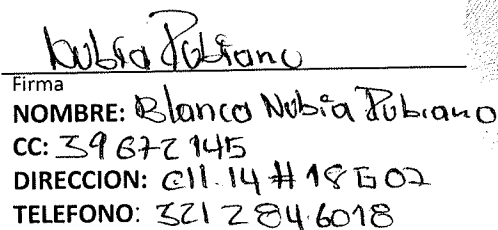 Nubia Pubiano
Firma
NOMBRE: Blanca Nubia Pubiano
CC: 39672145
DIRECCION: Cll. 14 # 18 G 02
TELEFONO: 321 284 6018